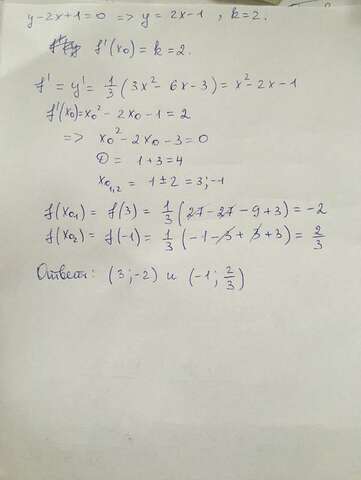 y-2x+1=0 => y = 2x-1 , k=2.
f'(x₀) = k = 2.
f' = y' = 1/3 (3x² - 6x - 3) = x² - 2x - 1
f'(x₀) = x₀² - 2x₀ - 1 = 2
=> x₀² - 2x₀ - 3 = 0
D = 1+3 = 4
x₀₁,₂ = 1±2 = 3; -1
f(x₀₁) = f(3) = 1/3 (27 - 27 - 9 + 3) = -2
f(x₀₂) = f(-1) = 1/3 (-1 - 3 + 3 + 3) = 2/3
Ответ: (3; -2) и (-1; 2/3)